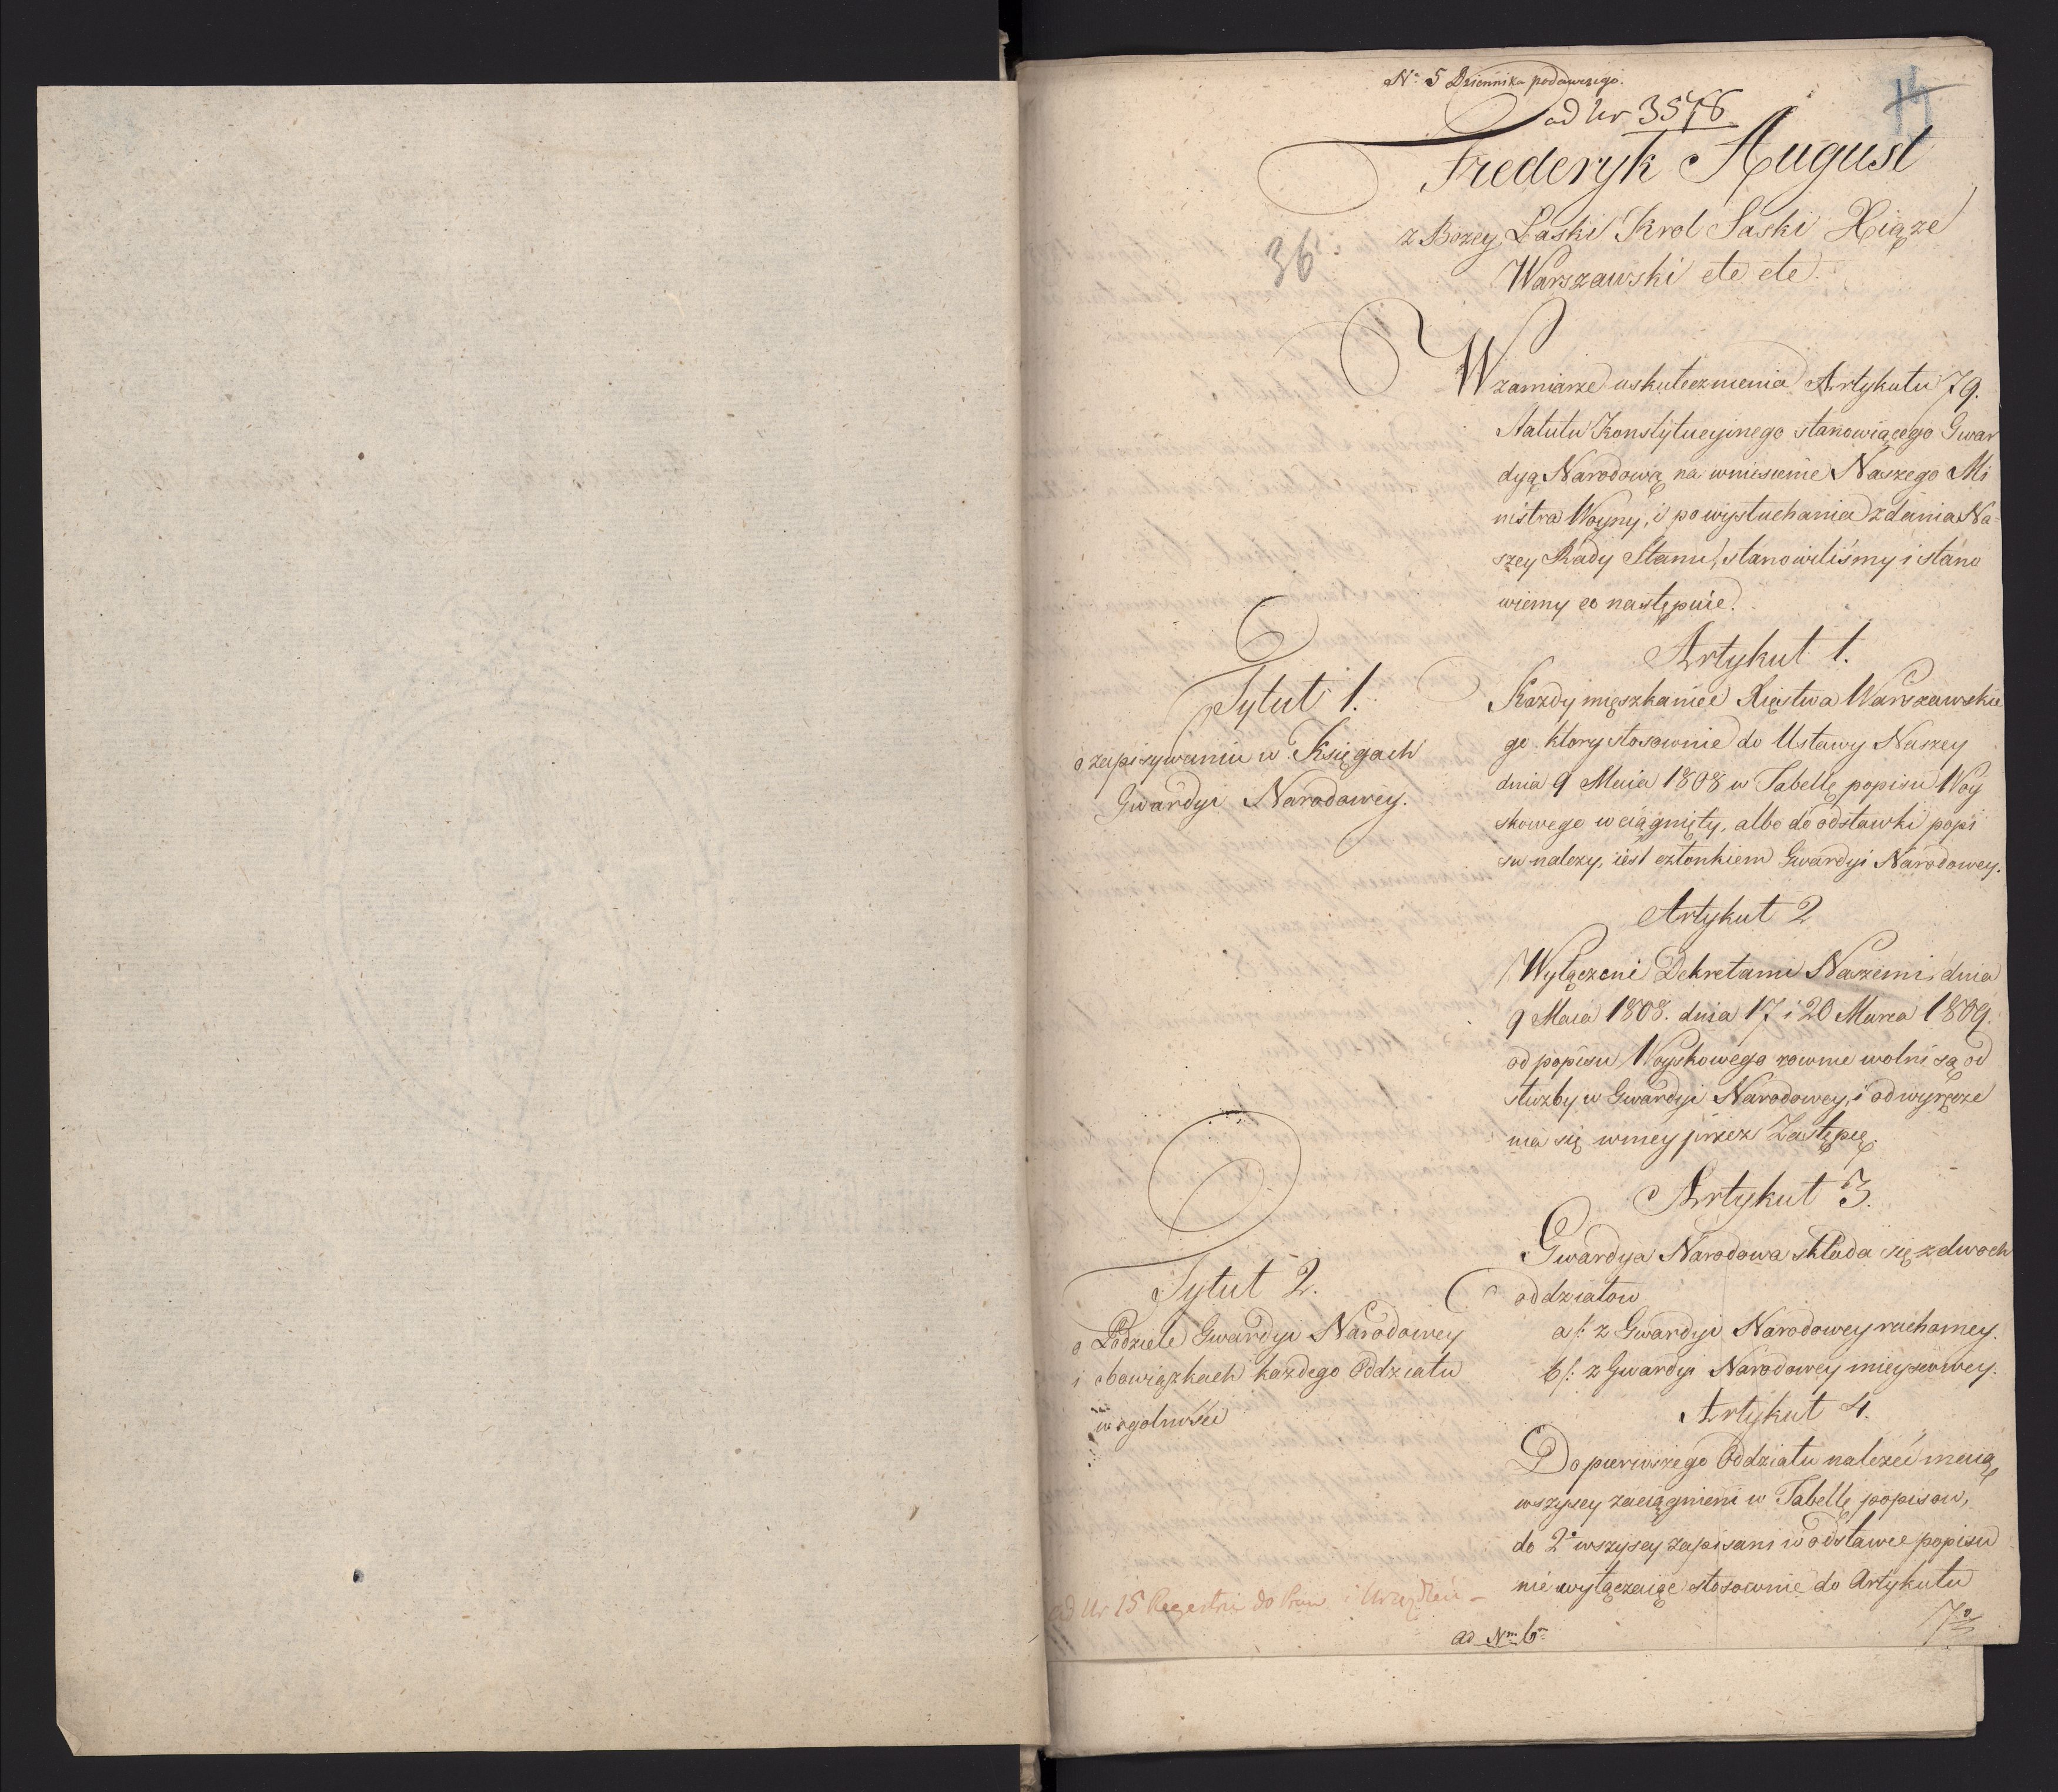 Nº 5 Dziennika podawczego.
ad Nr 3576
14
Frederyk August
z Bozey Łaski Krol Saski Xiąze
36
Warszawski etc etc.
W zamiarze uskutecznienia Artykułu 79.
Statutu Konstytucyinego stanowiącego Gwar
dyą Narodową na wniesienie Naszego Mi
nistra Woyny, i po wysłuchaniu zdania Na-
szey Rady Stanu, stanowiliśmy i stano
wiemy co następuie.
Artykuł 1.
Tytuł 1.
o zapisywaniu w Księgach
Gwardyi Narodowey.
Kazdy mięszkaniec Xięstwa Warszawskie
go który stosownie do Ustawy Naszey
dnia 9 Maia 1808 w Tabellę popisu Woy
skowego wciągnięty, albo do odstawki popi
su nalezy, iest członkiem Gwardyi Narodowey.
Artykuł 2
Wyłączeni Dekretami Naszemi dnia
9 Maia 1808. dnia 17 i 20 Marca 1809.
od popisu Woyskowego rownie wolni są od
służby w Gwardyi Narodowey, i od wyręcze
nia się w niey przez Zastępcę.
Artykuł 3.
Tytuł 2.
o Podziele Gwardyi Narodowey
i obowiązkach kazdego Oddziału
w ogolności
Gwardya Narodowa składa się z dwoch
oddziałow
a/: z Gwardyi Narodowey ruchomey.
b/: z Gwardyi Narodowey mieyscowey.
Artykuł 4.
Do pierwszego Oddziału nalezeć maią
wszyscy zaciągnieni w Tabellę popisow,
do 2º wszyscy zapisani w odstawce popisu
nie wyłączaiąc stosownie do Artykułu
7º
ad Nr 15 Regestru do Praw i Urządzeń -
ad Nm 6